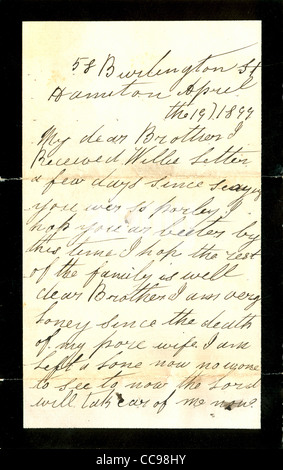 58 Burlington St
Hamelton April
the 19/1899
My dear Brother I
Received Willie Letter
a few days since saying
you wer so porley I
hop you ar beter by
this time I hop the rest
of the family is well
dear Brother I am very
loney since the death
of my pore wife I am
left a lone now no wone
to see to now the Lord
will tak car of me now
alamy stock photo
CC98HY
www.alamy.com